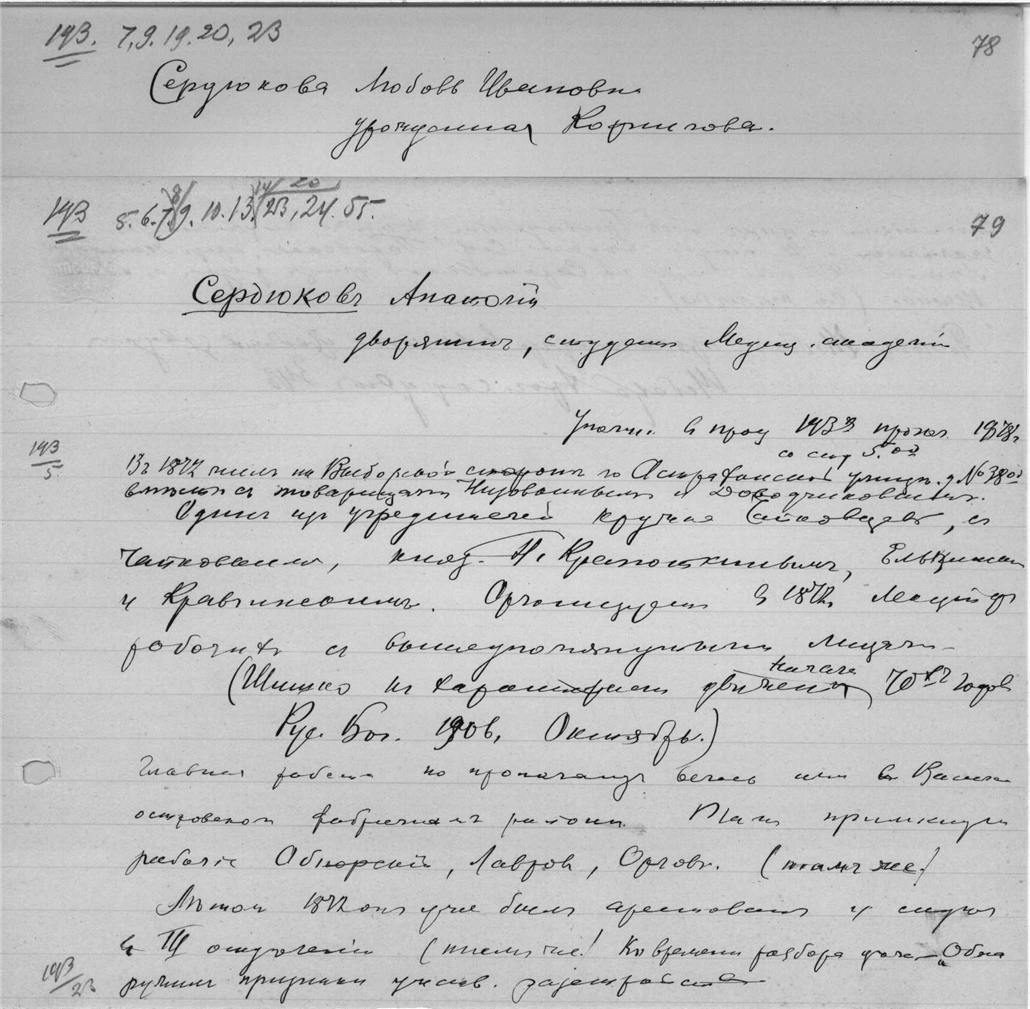 193. 7, 9. 19. 20, 23
78
Сердюкова Любовь Ивановна
урожденная Корнилова.
193 5. 6. 7. 8/9. 10. 13. 14/20 23, 24. 55.
79
Сердюковъ Анатолій
дворянинъ, студентъ Медиц. академіи
193
5
Въ 1872 жилъ на Выборгской сторонѣ по Астраханской улицѣ, д. № 38
вмѣстѣ съ товарищами Низовкинымъ и
Одинъ изъ учредителей кружка Чайковцевъ, съ
Чайковскимъ, княз. П. Кропоткинымъ,
и Кравчинскимъ. Организуетъ въ 1872
рабочихъ съ вышеупомянутыми лицами
(Шишко Къ характеристикѣ движенія начала 70хъ годовъ
Рус. Бог. 1906, Октябрь.)
Главная работа по пропагандѣ велась имъ въ Василе
островскомъ фабричномъ районѣ. Тамъ примкнули
рабочіе Обнорскій, Лавровъ, Орловъ. (тамъ же)
Лѣтомъ 1872 онъ уже былъ арестованъ и сидѣлъ
въ III отдѣленіи (тамъ же) Ко времени разбора дѣла Обна
193
23
ружилъ признаки умств. разстройства